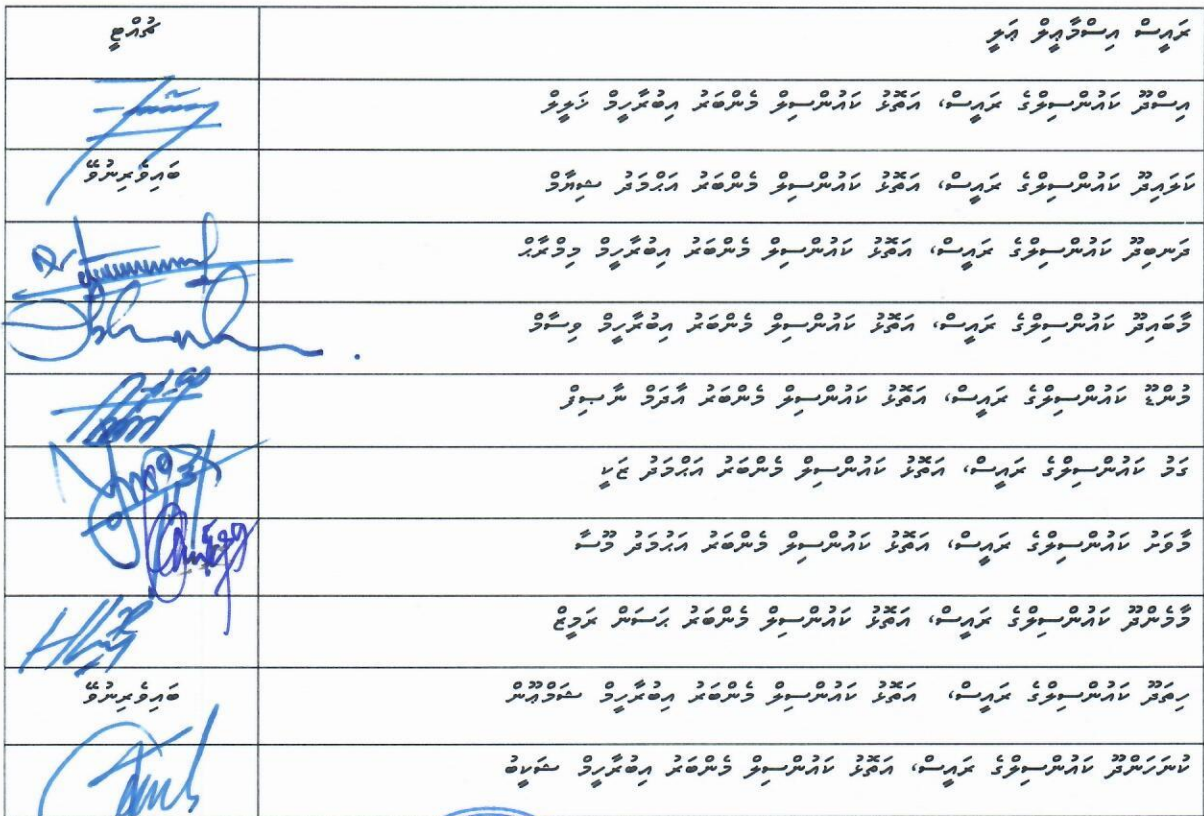 ރައީސް އިސްމާޢީލް ޢަލީ ޗުއްޓީ
އިސްދޫ ކައުންސިލްގެ ރައީސް، އަތޮޅު ކައުންސިލް މެންބަރު އިބުރާހީމް ޚަލީލް
ކަލައިދޫ ކައުންސިލްގެ ރައީސް، އަތޮޅު ކައުންސިލް މެންބަރު އަޙްމަދު ޝިޔާމް ބައިވެރިނުވޭ
ދަނބިދޫ ކައުންސިލްގެ ރައީސް، އަތޮޅު ކައުންސިލް މެންބަރު އިބުރާހީމް މިމްރާޙް
މާބައިދޫ ކައުންސިލްގެ ރައީސް، އަތޮޅު ކައުންސިލް މެންބަރު އިބުރާހީމް ވިސާމް
މުންޑޫ ކައުންސިލްގެ ރައީސް، އަތޮޅު ކައުންސިލް މެންބަރު އާދަމް ނާޞިފް
ގަމު ކައުންސިލްގެ ރައީސް، އަތޮޅު ކައުންސިލް މެންބަރު އަޙްމަދު ޒަކީ
މާވަށު ކައުންސިލްގެ ރައީސް، އަތޮޅު ކައުންސިލް މެންބަރު އަޙުމަދު މޫސާ
މާމެންދޫ ކައުންސިލްގެ ރައީސް، އަތޮޅު ކައުންސިލް މެންބަރު ޙަސަން ރަމީޒް
ހިތަދޫ ކައުންސިލްގެ ރައީސް، އަތޮޅު ކައުންސިލް މެންބަރު އިބުރާހީމް ޝަމްޢޫން ބައިވެރިނުވޭ
ކުނަހަންދޫ ކައުންސިލްގެ ރައީސް، އަތޮޅު ކައުންސިލް މެންބަރު އިބުރާހީމް ޝަކީބު